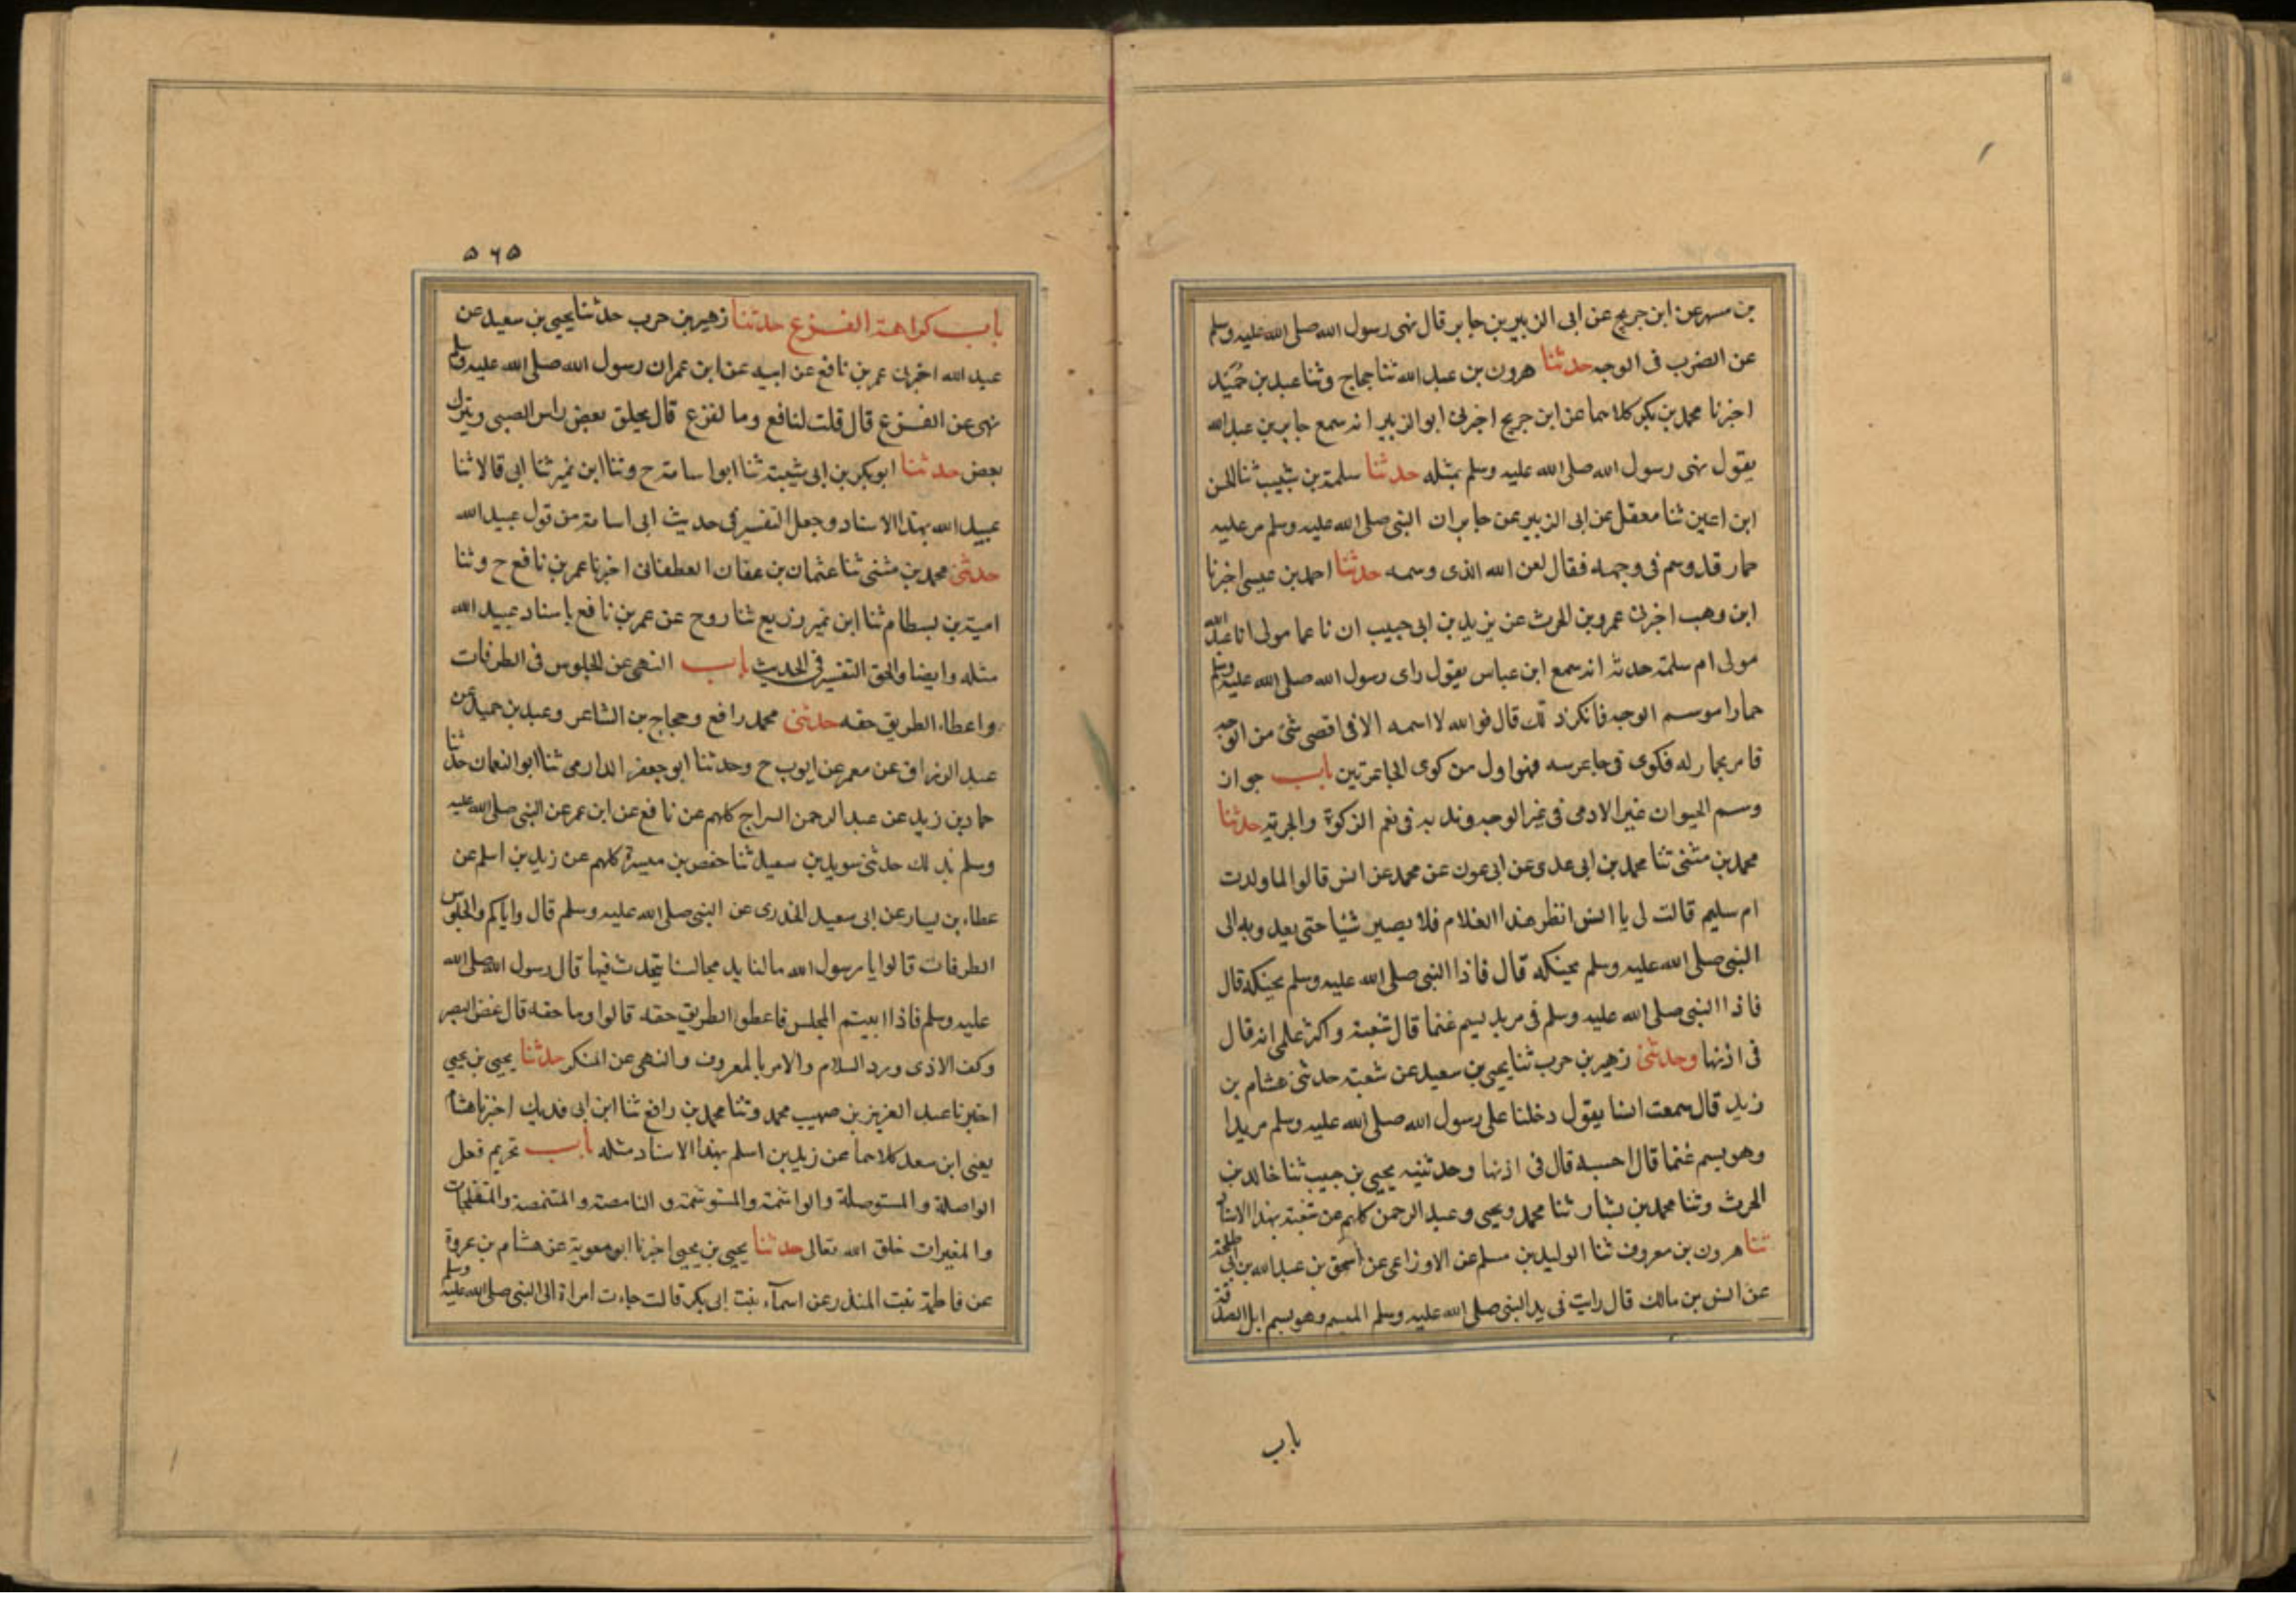 بن مسهر عن ابن جريج عن ابى الزبير بن جابر قال نهى رسول الله صلى الله عليه وسلم
عن الضرب فى الوجه حدثنا هرون بن عبد الله ثنا حجاج وثنا عبد بن حميد
اخبرنا محمد بن بكر كلاهما عن ابن جريج اخبرنى ابو الزبير انه سمع جابر بن عبد الله
يقول نهى رسول الله صلى الله عليه وسلم بمثله حدثنا سلمة بن شبيب ثنا الحسن
ابن اعين ثنا معقل عن ابى الزبير عن جابر ان النبى صلى الله عليه وسلم مر عليه
حمار قد وسم فى وجهه فقال لعن الله الذى وسمه حدثنا احمد بن عيسى اخبرنا
ابن وهب اخبرنى عمرو بن الحرث عن يزيد بن ابى حبيب ان ناعما مولى انا عبد الله
مولى ام سلمة حدثه انه سمع ابن عباس يقول راى رسول الله صلى الله عليه وسلم
حمارا موسم الوجه فانكر ذلك قال فوالله لا اسمه الا فى اقصى شئ من الوجه
فامر بحمار له فكوى فى جاعرسه فهو اول من كوى الجاعرتين باب جواز
وسم الحيوان غير الادمى فى غير الوجه وندبه فى نعم الزكوة والجزية حدثنا
محمد بن مثنى ثنا محمد بن ابى عدى عن ابى عون عن محمد عن انس قالوا لما ولدت
ام سليم قالت لى يا انس انظر هذا الغلام فلا يصيبن شيا حتى يعدو به الى
النبى صلى الله عليه وسلم يحنكه قال فاذا النبى صلى الله عليه وسلم يحنكه قال
فاذا النبى صلى الله عليه وسلم فى مربد يسم غنما قال شعبة واكثر علمى انه قال
فى اذنها وحدثنى زهير بن حرب ثنا يحيى بن سعيد عن شعبة حدثنى هشام بن
زيد قال سمعت انسا يقول دخلنا على رسول الله صلى الله عليه وسلم مربدا
وهو يسم غنما قال احسبه قال فى اذنها وحدثنيه يحيى بن حبيب ثنا خالد بن
الحرث وثنا محمد بن بشار ثنا محمد ويحيى وعبد الرحمن كلهم عن شعبة بهذا الاسناد
ثنا هرون بن معروف ثنا الوليد بن مسلم عن الاوزاعى عن اسحق بن عبد الله بن ابى طلحة
عن انس بن مالك قال رايت فى يد النبى صلى الله عليه وسلم الميسم وهو يسم ابل الصدقة
باب
٥٦٥
باب كراهة القزع حدثنا زهير بن حرب حدثنا يحيى بن سعيد عن
عبيد الله اخبرنى عمر بن نافع عن ابيه عن ابن عمر ان رسول الله صلى الله عليه وسلم
نهى عن القزع قال قلت لنافع وما لقزع قال يحلق بعض راس الصبى ويترك
بعض حدثنا ابو بكر بن ابى شيبة ثنا ابو اسامة ح وثنا ابن نمير ثنا ابى قالا ثنا
عبيد الله بهذا الاسناد وجعل التفسير فى حديث ابى اسامة من قول عبيد الله
حدثنى محمد بن مثنى ثنا عثمان بن عفان الغطفانى اخبرنا عمر بن نافع ح وثنا
امية بن بسطام ثنا ابن نمير وزريع ثنا روح عن عمر بن نافع باسناد عبيد الله
مثله وايضا والحق التفسير فى الحديث باب النهى عن الجلوس فى الطرقات
واعطاء الطريق حقه حدثنى محمد رافع وحجاج بن الشاعر وعبد بن حميد عن
عبد الرزاق عن معمر عن ايوب ح وحدثنا ابو جعفر الدارمى ثنا ابو النعمان حدثنا
حماد بن زيد عن عبد الرحمن السراج كلهم عن نافع عن ابن عمر عن النبى صلى الله عليه
وسلم بذلك حدثنى سويد بن سعيد ثنا حفص بن ميسرة كلهم عن زيد بن اسلم عن
عطاء بن يسار عن ابى سعيد الخدرى عن النبى صلى الله عليه وسلم قال واياكم والجلوس
الطرقات قالوا يا رسول الله مالنا بد مجالسنا يتحدث فيها قال رسول الله صلى الله
عليه وسلم فاذا ابيتم المجلس فاعطوا الطريق حقه قالوا وما حقه قال غض البصر
وكف الاذى ورد السلام والامر بالمعروف والنهى عن المنكر حدثنا يحيى بن يحيى
اخبرنا عبد العزيز بن صهيب محمد وثنا محمد بن رافع ثنا ابن ابى فديك اخبرنا هشام
يعنى ابن سعد كلاهما عن زيد بن اسلم بهذا الاسناد مثله باب تحريم فعل
الواصلة والمستوصلة والواشمة والمستوشمة والنامصة والمتنمصة والمتفلجات
والمغيرات خلق الله تعالى حدثنا يحيى بن يحيى اخبرنا ابو معوية عن هشام بن عروة
عن فاطمة بنت المنذر عن اسمآء بنت ابى بكر قالت جاءت امراة الى النبى صلى الله عليه وسلم